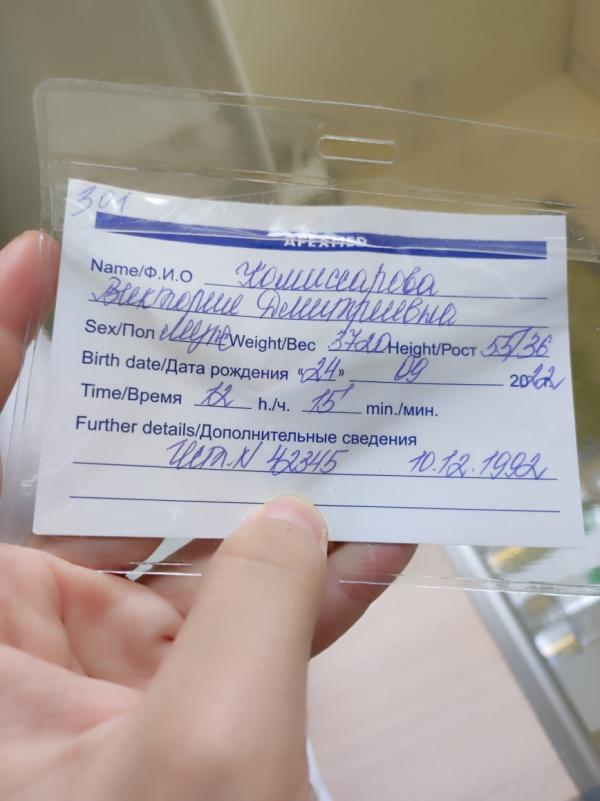 301
APEXMED
Name/Ф.И.О Комиссарова
Виктория Дмитриевна
Sex/Пол Муж Weight/Вес 3720 Height/Рост 55/36
Birth date/Дата рождения «24» 09 2022
Time/Время 12 h./ч. 15 min./мин.
Further details/Дополнительные сведения
Ист. N 42345 10.12.1992